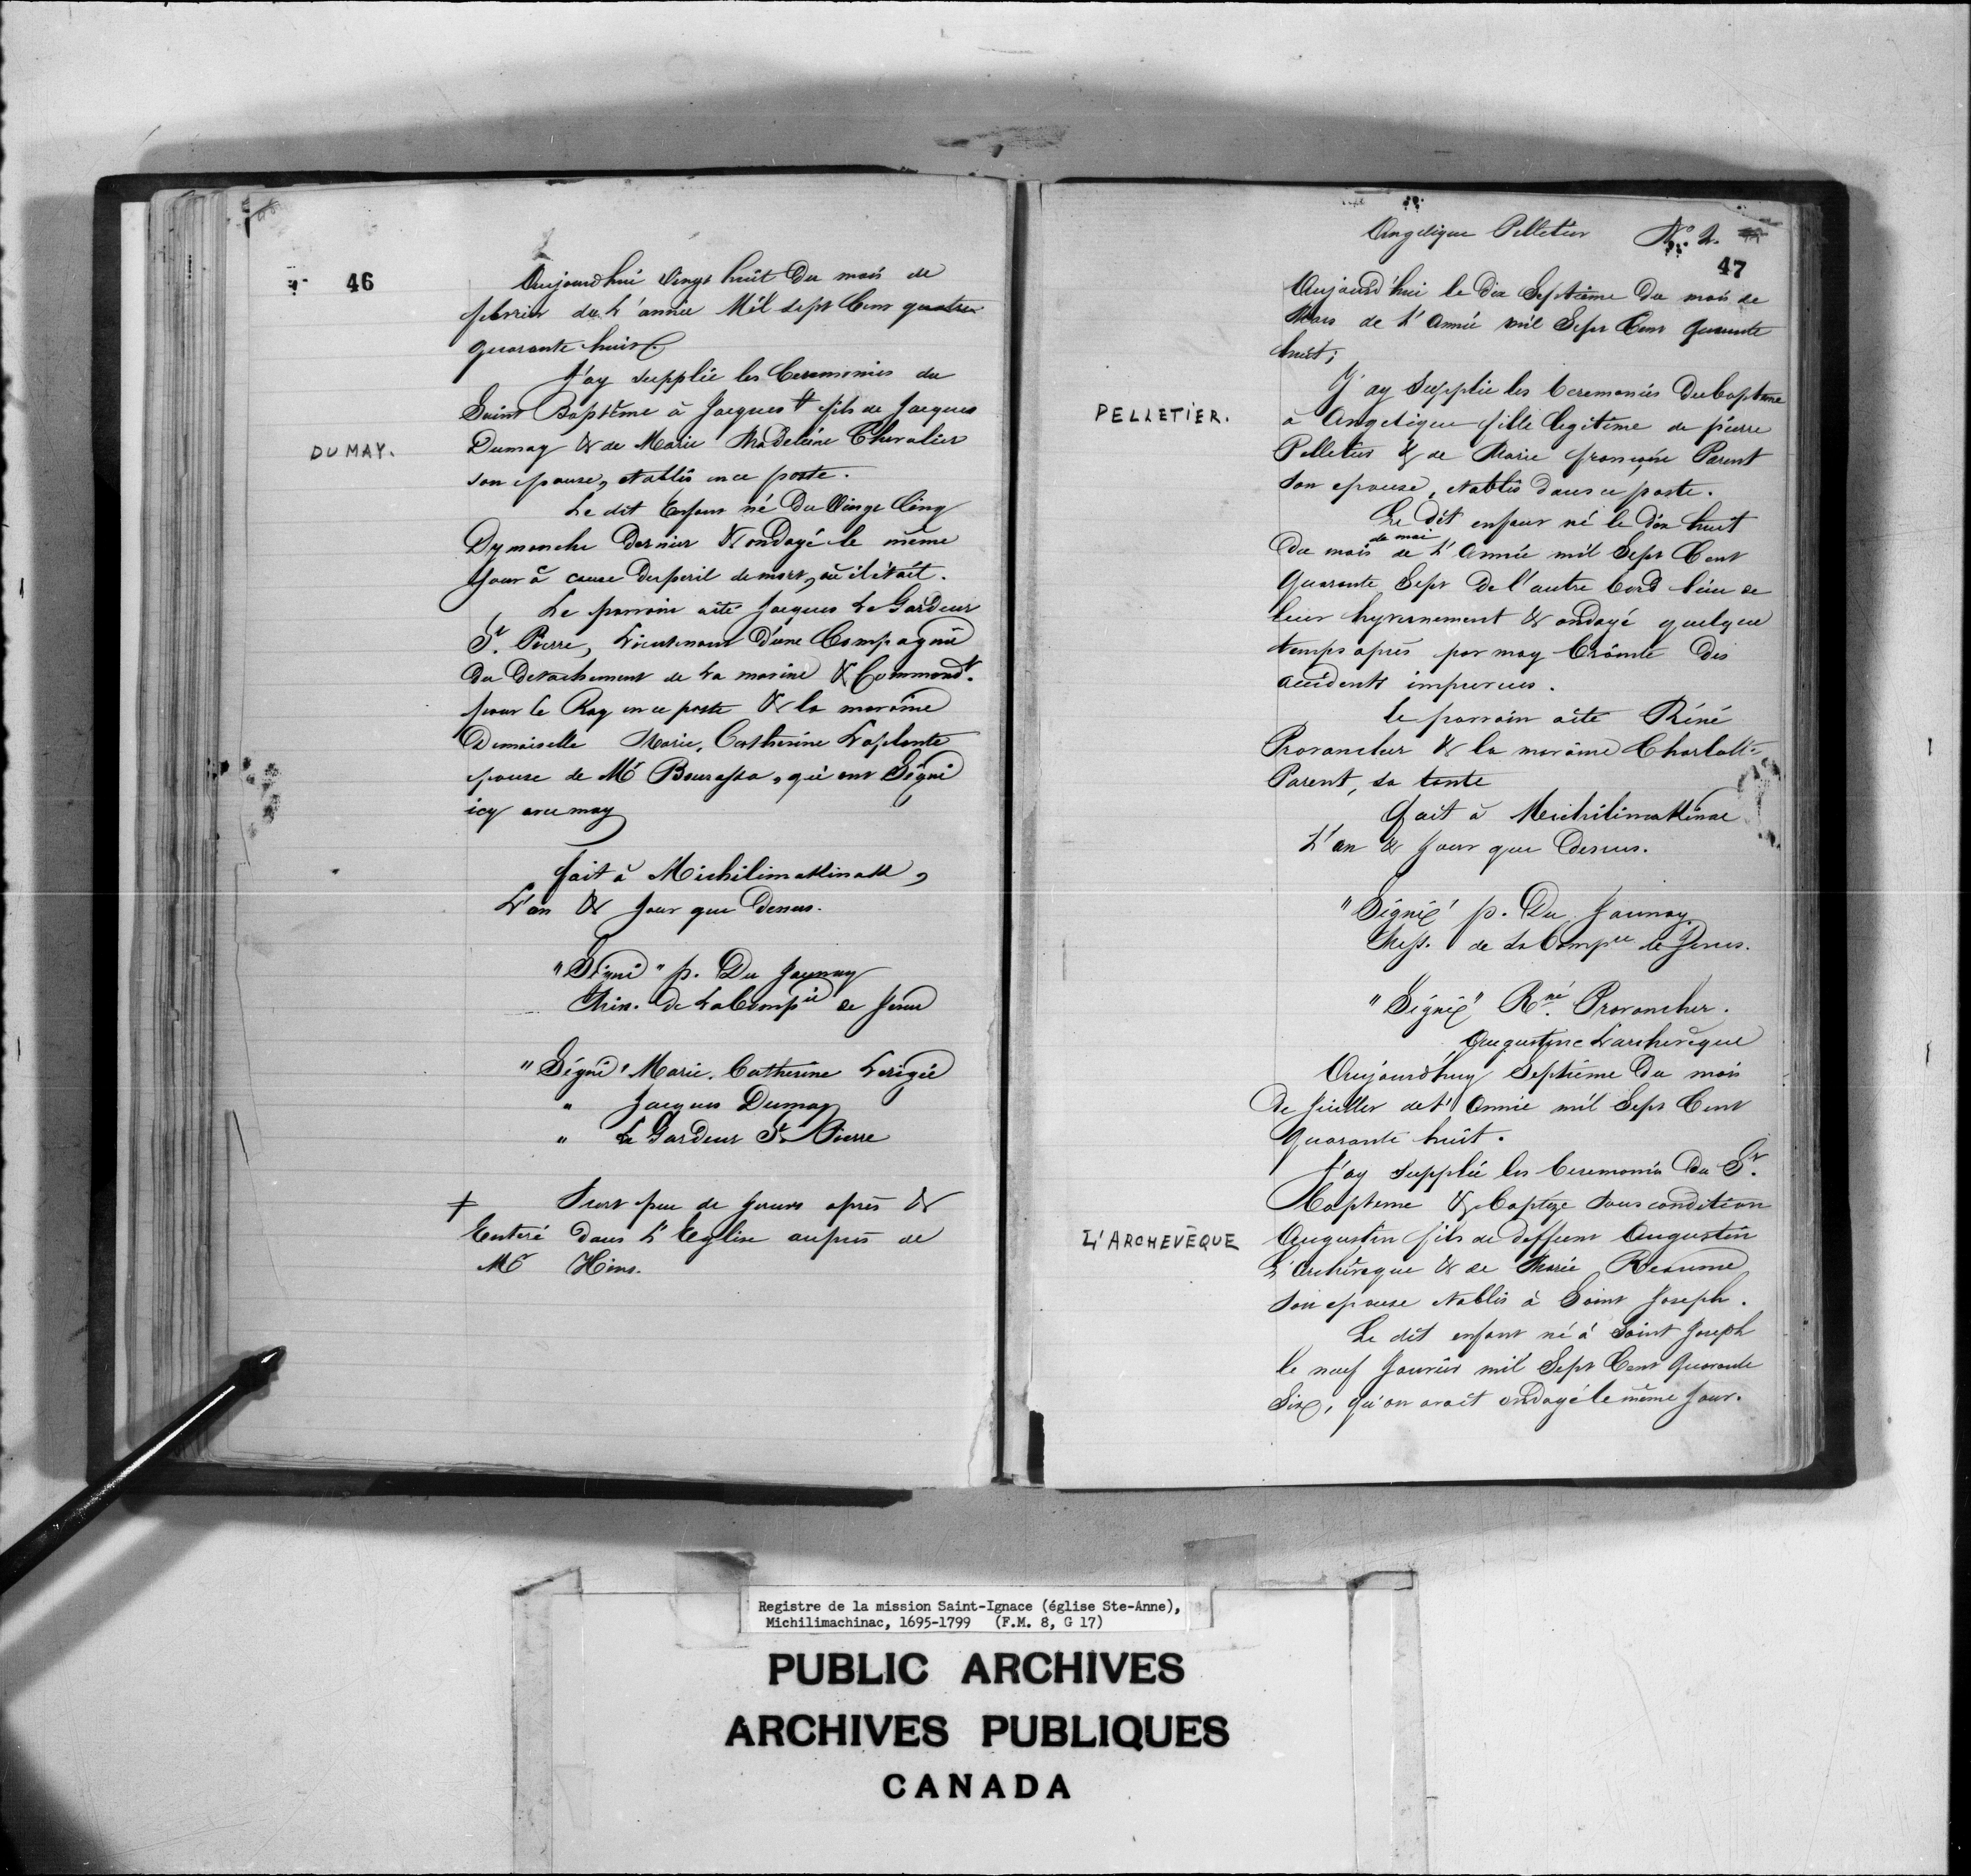 46
Aujourdhui Vingt huit Du mois de
fevrier de L'année Mil Sept Cent quatre
quarante huit.
J'ay supplée les Ceremonies du
Saint Baptême à Jacques ‡ fils de Jacques
DUMAY.
Dumay & de Marie Madeleine Chevalier
son epouse, etablis en ce poste.
Le dit Enfant né Du Vingt Cinq
Dymanche Dernier & ondoyé le même
Jour à cause Du peril de mort, où il était.
Le parrain a été Jacques Le Gardeur
St. Pierre, Lieutenant D'une Compagnie
Du Detachement de La marine & Commandt.
pour le Roy en ce poste & la maraine
Demoiselle Marie, Catherine Laplante
epouse de Mr Bourassa, qui ont Signé
icy avec moy
fait à Michilimakinak,
L'an & Jour que Dessus.
"Signé" p. Du Jaunay
Miss. de La Compie de Jesus
"Signé" Marie. Catherine Lerigée
" Jacques Dumay
" Le Gardeur St Pierre
‡ Mort peu de Jours après &
Enteré dans L'Eglise auprès de
Mr Hins.
Angelique Pelletier No. 2.
47
Aujourd'hui le Dix Septième Du mois de
Mars de L'Année mil Sept Cent Quarante
huit;
J'ay Supplée les Ceremonies Du bapteme
PELLETIER.
à Angelique fille legitime de pierre
Pelletier & de Marie françoise Parent
son epouse, etablis dans ce poste.
Le Dit enfant né le Dix huit
de mai
Du mois de L'Année mil Sept Cent
Quarante Sept De l'autre bord lieu de
leur hyvernement & ondoyé quelque
temps après par moy Crainte Des
accidents imprevus.
le parrain a été Réné
Provancher & la maraine Charlotte
Parent, sa tante
fait à Michilimakinac
L'an & Jour que Dessus.
"Signé" p. Du Jaunay.
Miss. de La Compie de Jesus.
"Signé" Rné. Provancher.
Augustine Larchevêque
Aujourdhuy Septième Du mois
De Juillet de L'Année mil Sept Cent
Quarante huit.
J'ay supplée les Ceremonies Du St.
Bapteme & baptize sous condition
L'ARCHEVÊQUE
Augustin fils de deffunt Augustin
L'Archevêque & de Marie Reaume
Son epouse etablis à Saint Joseph.
Le dit enfant né à Saint Joseph
le neuf Janvier mil Sept Cent Quarante
Six, qu'on avait ondoyé le même Jour.
Registre de la mission Saint-Ignace (église Ste-Anne),
Michilimachinac, 1695-1799 (F.M. 8, G 17)
PUBLIC ARCHIVES
ARCHIVES PUBLIQUES
CANADA